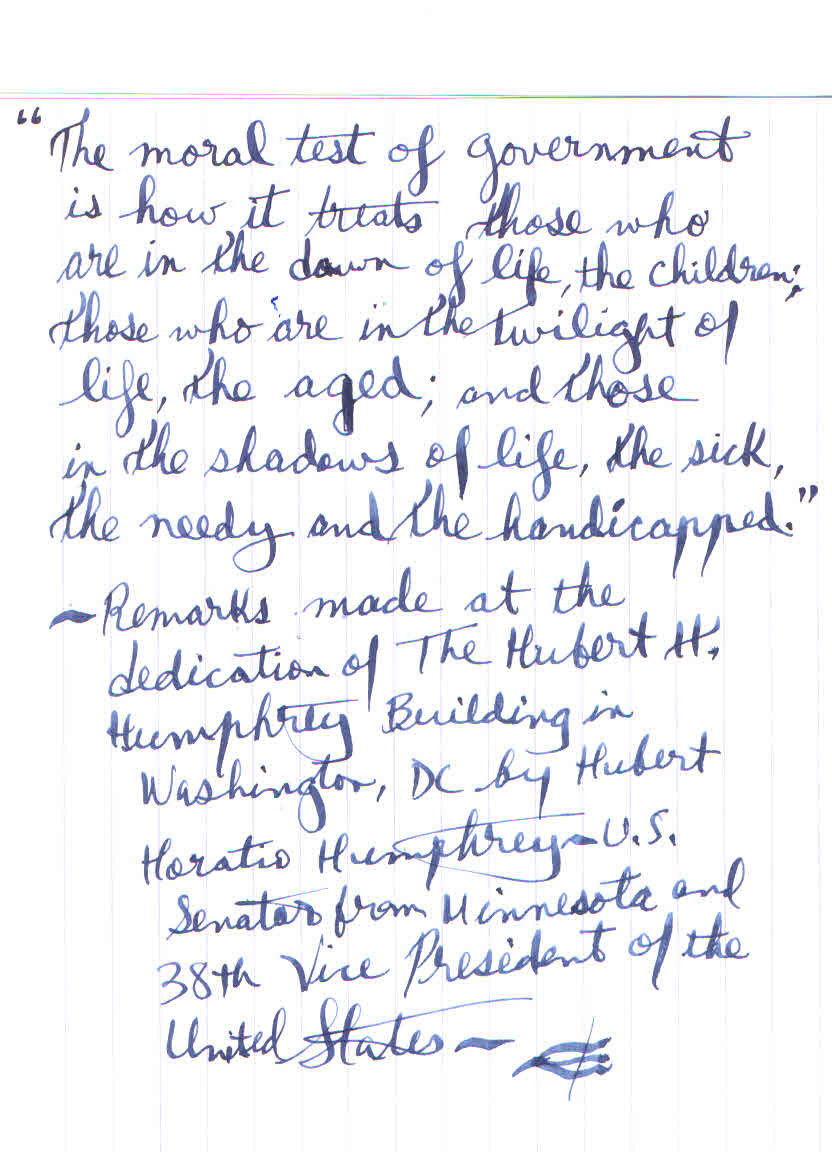 “The moral test of government
is how it treats those who
are in the dawn of life, the children;
those who are in the twilight of
life, the aged; and those
in the shadows of life, the sick,
the needy and the handicapped.”
~Remarks made at the
dedication of The Hubert H.
Humphrey Building in
Washington, DC by Hubert
Horatio Humphrey~U.S.
Senator from Minnesota and
38th Vice President of the
United States~